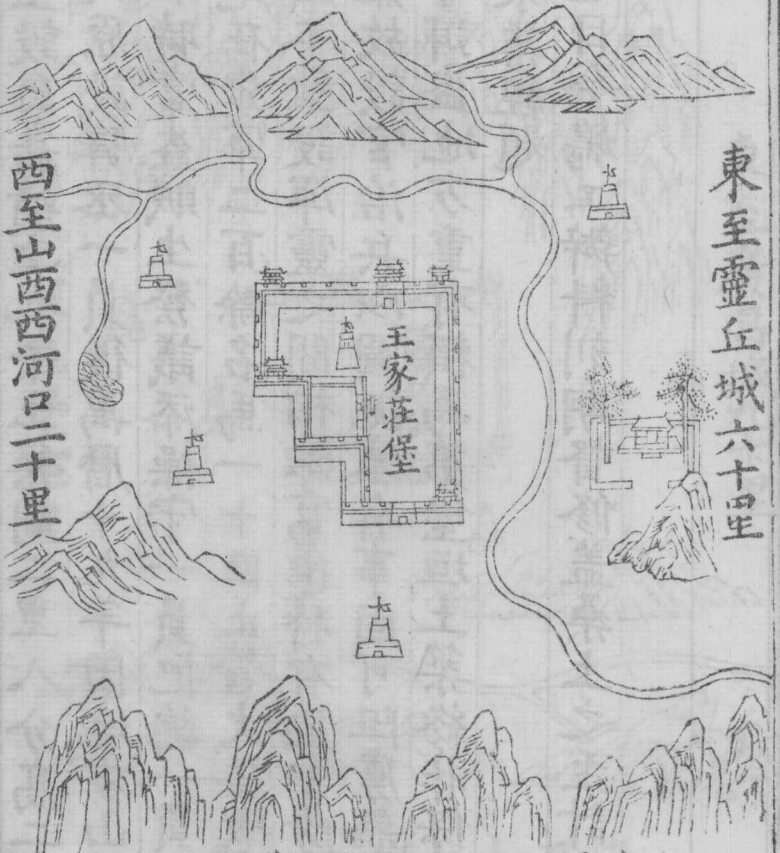 東至靈丘城六十里
王家莊堡
西至山西西河口二十里